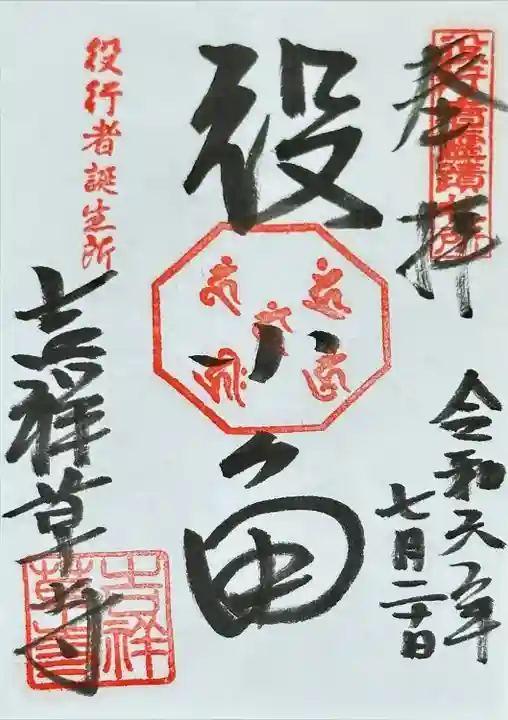 奉拝
役行者霊蹟札所
令和元年
七月二十日
役小角
役行者誕生所
吉祥草寺
吉祥草寺